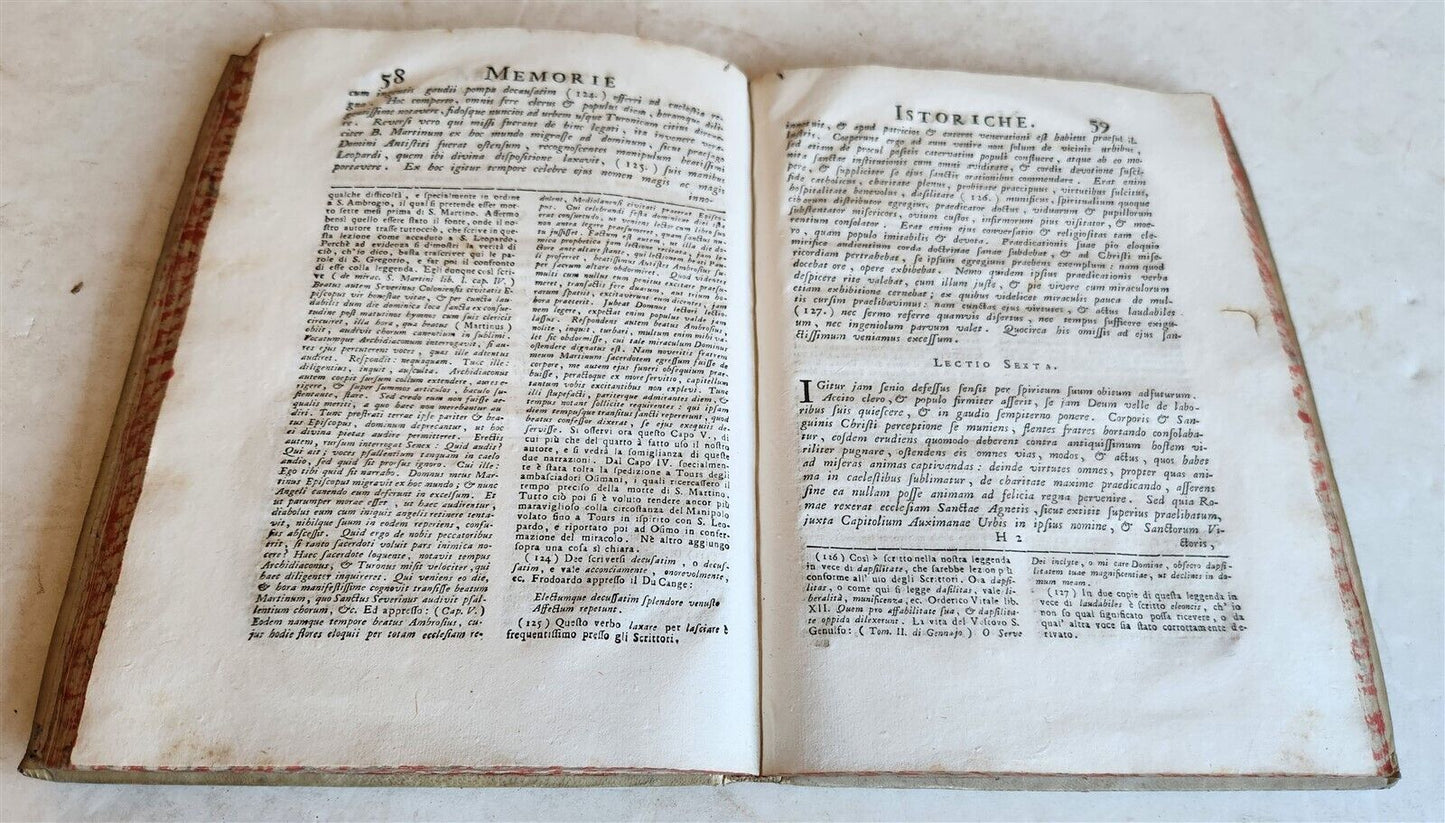 58 MEMORIE
cum ingentis gaudii pompa decausatim (124.) efferri ad ecclesia
Hoc comperto, omnis fere clerus & populus diem, horamque
notavere, fidosque nuncios ad urbem usque Turonicam citius
re. Reversi vero qui missi fuerant de hinc legati, ita invenere
citer B. Martinum ex hoc mundo migrasse ad dominum, sicut praesago
Domini Antistiti fuerat ostensum, recognoscentes manipulum beatissimi
Leopardi, quem ibi divina dispositione laxavit, (125.) suis manibus
portavere. Ex hoc igitur tempore celebre ejus nomen magis ac magis
inno-
qualche difficoltà, e specialmente in ordine
a S. Ambrogio, il qual si pretende esser mor-
to sette mesi prima di S. Martino. Affermo
bensì quello esser stato il fonte, onde il no-
stro autore trasse tuttociò, che scrive in que-
sta lezione come accaduto a S. Leopardo.
Perchè ad evidenza si dimostri la verità di
ciò, ch'io dico, basta trascriver quì le pa-
role di S. Gregorio, e far poi il confronto
di esse colla leggenda. Egli donque così scri-
ve (de mirac. S. Martini lib. I. cap. IV.)
Beatus autem Severinus Coloniensis civitatis E-
piscopus vir honestae vitae, & per cuncta lau-
dabilis dum die dominica loca sancta ex consue-
tudine post matutinos hymnos cum suis clericis
circuiret, illa hora, qua beatus (Martinus)
obiit, audivit chorum canentium in sublimi.
Vocatumque Archidiaconum interrogavit, si au-
res ejus percuterent voces, quas ille adtentus
audiret. Respondit: nequaquam. Tunc ille:
diligentius, inquit, ausculta. Archidiaconus
autem coepit sursum collum extendere, aures e-
rigere, & super summos articulos, baculo su-
stentante, stare. Sed credo eum non fuisse ae-
qualis meriti, a quo haec non merebantur au-
diri. Tunc prostrati terrae ipse pariter & bea-
tus Episcopus, dominum deprecantur, ut hoc
ei divina pietas audire permitteret. Erectis
autem, rursum interrogat Senex: Quid audis?
Qui ait: voces psallentium tanquam in caelo
audio, sed quid sit prorsus ignoro. Cui ille:
Ego tibi quid sit narrabo. Dominus meus Mar-
tinus Episcopus migravit ex hoc mundo; & nunc
Angeli canendo eum deferunt in excelsum. Et
ut parumper morae esset, ut haec audirentur,
diabolus eum cum iniquis angelis retinere tenta-
vit, nihilque suum in eodem reperiens, confu-
sus abscessit. Quid ergo de nobis peccatoribus
erit, si tanto sacerdoti voluit pars inimica no-
cere? Haec sacerdote loquente, notavit tempus
Archidiaconus, & Turonus misit velociter, qui
haec diligenter inquireret. Qui veniens eo die,
& hora manifestissime cognovit transisse beatum
Martinum, quo Sanctus Severinus audivit psal-
lentium chorum, &c. Ed appresso: (Cap. V.)
Eodem namque tempore beatus Ambrosius, cu-
jus hodie flores eloquii per totam ecclesiam re-
dolent, Mediolanensi civitati praeerat Episco-
pus. Cui celebranti festa dominica ista
erat consuetudo, ut veniens lector cum libro
non antea legere praesumeret, quam
nutu jussisset. Factum est autem, ut illa
mica prophetica jam lectione
ctore ante altare stante, qui lectionem
li proferret, beatissimus Antistes Ambrosius su-
per sacrum altare obdormiret. Quod videntes
multi cum nullus eum penitus excitare praesu-
meret, transactis fere duarum, aut trium ho-
rarum spatiis, excitaverunt eum dicentes, jam
hora praeterit. Jubeat Dominus lectori lectio-
nem legere, expectat enim populus valde jam
lassus. Respondens autem beatus Ambrosius,
nolite, inquit, turbari, multum enim mihi va-
let sic obdormisse, cui tale miraculum Dominus
ostendere dignatus est. Nam noveritis fratrem
meum Martinum sacerdotem egressum fuisse de
corpore, me autem ejus funeri obsequium prae-
buisse, peractoque ex more servitio, capitellum
tantum vobis excitantibus non explevi. Tunc
illi stupefacti, pariterque admirantes diem, &
tempus notant sollicite requirentes: qui ipsam
diem tempusque transitus sancti repererunt, quod
beatus confessor dixerat, se ejus exequiis de-
servisse. Si osservi ora questo Capo V., di
cui più che del quarto è fatto uso il nostro
autore, e si vedrà la somiglianza di queste
due narrazioni. Dal Capo IV. specialmen-
te è stata tolta la spedizione a Tours degli
ambasciadori Osimani, i quali ricercassero il
tempo preciso della morte di S. Martino.
Tutto ciò poi si è voluto tendere ancor più
maraviglioso colla circostanza del Manipolo
volato fino a Tours in ispirito con S. Leo-
pardo, e riportato poi ad Osimo in confer-
mazione del miracolo. Nè altro aggiungo
sopra una cosa sì chiara.
(124) Dee scriversi decusatim, o decus-
satim, e vale acconciamente, onorevolmente,
ec. Frodoardo appresso il Du Cange:
Electumque decussatim splendore venusto
Affectum repetunt.
(125) Questo verbo laxare per lasciare è
frequentissimo presso gli Scrittori.
ISTORICHE. 59
& apud patricios & caeteros venerationi est habitus praesul il-
lustris. Coeperunt ergo ad eum venire non solum de vicinis urbibus,
sed etiam de procul positis catervatim populi confluere, atque ab eo mo-
nita sanctae institutionis cum omni aviditate, & cordis devotione susci-
pere, & suppliciter se ejus sanctis orationibus commendare. Erat enim
fide catholicus, charitate plenus, probitate praecipuus, virtutibus fulcitus,
hospitalitate benevolus, dasilitate (126.) munificus, spiritualium quoque
ciborum distributor egregius, praedicator doctus, viduarum & pupillorum
substentator misericors, ovium custos, infirmorum pius visitator, & moe-
rentium consolator. Erat enim ejus conversatio & religiositas tam cle-
ro, quam populo imitabilis & devota. Praedicationis suae pio eloquio
mirifice audientium corda doctrinae sanae subdebat, & ad Christi mise-
ricordiam pertrahebat, se ipsum egregium praebens exemplum: nam quod
docebat ore, opere exhibebat. Nemo quidem ipsius praedicationis verba
despicere rite valebat, cum illum juste, & pie vivere cum miraculorum
citam exhibitione cernebat; ex quibus videlicet miraculis pauca de mul-
tis cursim praelibavimus: nam cunctas ejus virtutes, & actus laudabiles
(127.) nec sermo referre quamvis disertus, nec tempus sufficere exigu-
um, nec ingeniolum parvum valet. Quocirca his omissis ad ejus san-
ctissimum veniamus excessum.
LECTIO SEXTA.
IGitur jam senio defessus sensit per spiritum suum obitum adfuturum.
Accito clero, & populo firmiter asserit, se jam Deum velle de labo-
ribus suis quiescere, & in gaudio sempiterno ponere. Corporis & San-
guinis Christi perceptione se muniens, flentes fratres hortando consolaba-
tur, eosdem erudiens quomodo deberent contra antiquissimum hostem vi-
riliter pugnare, ostendens eis omnes vias, modos, & actus, quos habet
ad miseras animas captivandas: deinde virtutes omnes, propter quas ani-
ma in caelestibus sublimatur, de charitate maxime praedicando, asserens
sine ea nullam posse animam ad felicia regna pervenire. Sed quia Ro-
mae rexerat ecclesiam Sanctae Agnetis, sicut extitit superius praelibatum,
juxta Capitolium Auximanae Urbis in ipsius nomine, & Sanctorum Vi-
H 2 ctoris,
(126) Così è scritto nella nostra leggenda
in vece di dapsilitate, che sarebbe lezion più
conforme all' uso degli Scrittori. Ora dapsi-
litas, o come quì si legge dasilitas, vale li-
beralità, munificenza, ec. Orderico Vitale lib.
XII. Quem pro affabilitate sua, & dapsilita-
te oppida dilexerunt. La vita del Vescovo S.
Genulfo: (Tom. II. di Gennajo) O Serve
Dei inclyte, o mi care Domine, obsecro dapsi-
litatem tuae magnificentiae, ut declines in do-
mum meam.
(127) In due copie di questa leggenda in
vece di laudabiles è scritto eleoncis, ch' io
non so qual significato possa ricevere, o da
qual' altra voce sia stato corrottamente de-
rivato.